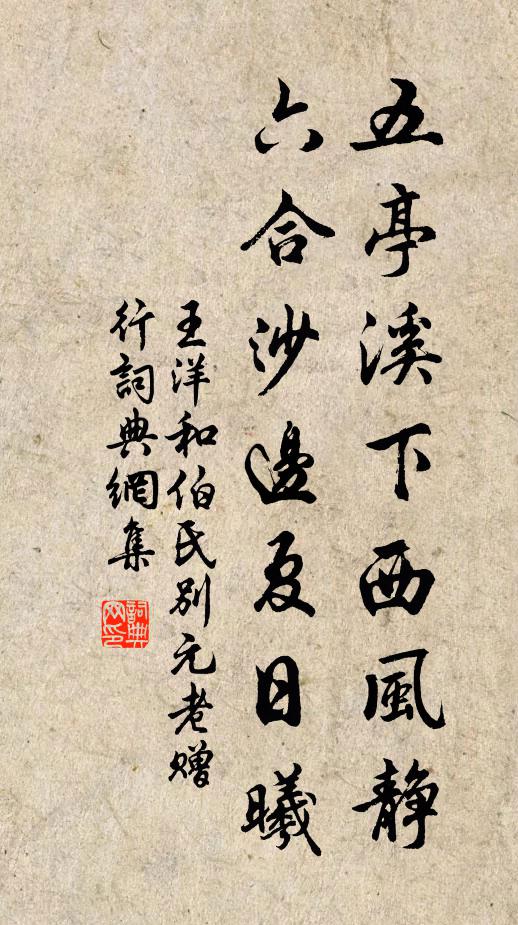 五亭溪下西風静
六合沙邊夏日曦
王洋和伯氏別元老贈
行詞典網集
詞典
网印